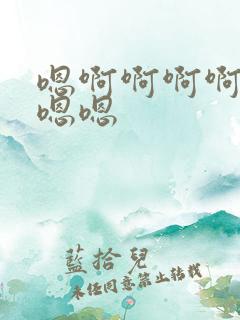 嗯啊啊啊啊
嗯嗯
藍拾兒
未經同意禁止轉載